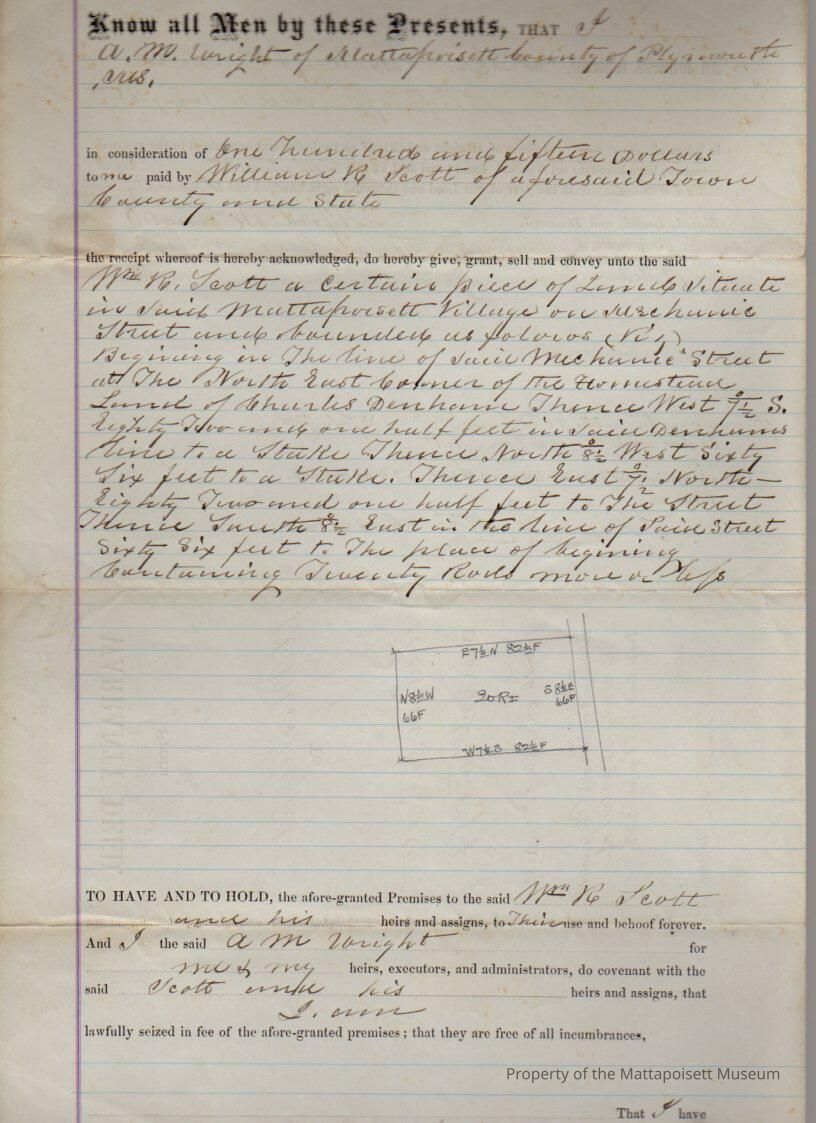 Know all Men by these Presents, THAT I
A. M. Wright of Mattapoisett County of Plymouth
in consideration of One hundred and fifteen Dollars
to me paid by William R Scott of aforesaid Town
County and State
the receipt whereof is hereby acknowledged, do hereby give, grant, sell and convey unto the said
Wm R. Scott a Certain piece of Land Situate
in Said Mattapoisett Village on Mechanic
Street and bounded as folows (Viz)
Begining in The line of Said Mechanic Street
at The North East Corner of the Homestead
Land of Charles Denham Thence West 7½° S.
Eighty Two and one half feet in Said Denhams
line to a Stake Thence North 8½° West Sixty
Six feet to a Stake. Thence East 7½° North—
Eighty Two and one half feet to The Street
Thence South 8½° East in the line of Said Street
Sixty Six feet to The place of begining
Containing Twenty Rods more or less
E7½N 82½F
N8½W
66F
20R±
S8½E
66F
W7½S 82½F
WARRANTY DEED.
TO HAVE AND TO HOLD, the afore-granted Premises to the said Wm R Scott
and his heirs and assigns, to Their use and behoof forever.
And I the said A M Wright for
me & my heirs, executors, and administrators, do covenant with the
said Scott and his heirs and assigns, that
I am
lawfully seized in fee of the afore-granted premises; that they are free of all incumbrances,
Property of the Mattapoisett Museum
That I have